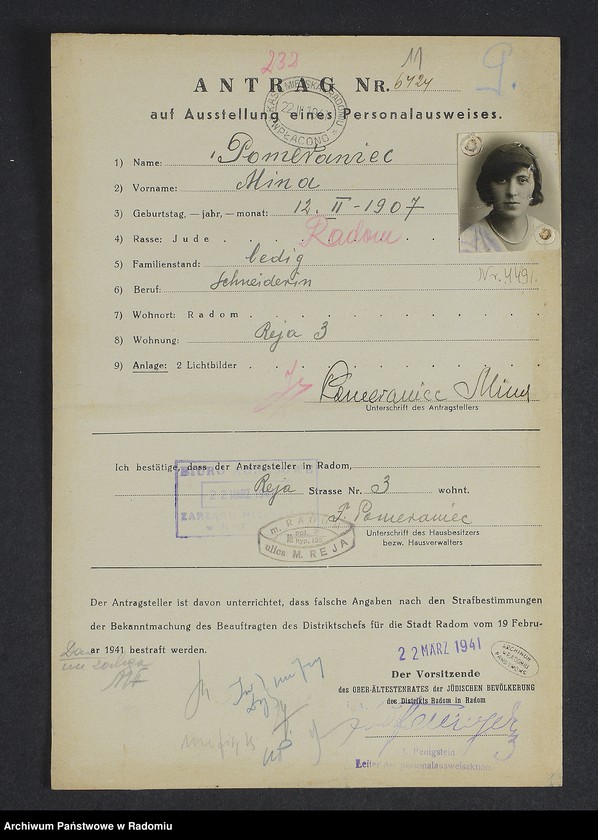 232
11
ANTRAG NR. 6424
auf Ausstellung eines Personalausweises.
1) Name: Pomeraniec
2) Vorname: Mina
3) Geburtstag, — jahr, — monat: 12. II - 1907
4) Rasse: Jude Radom
5) Familienstand: ledig
6) Beruf: Schneiderin
Nr. 4491.
7) Wohnort: Radom
8) Wohnung: Reja 3
9) Anlage: 2 Lichtbilder
Pomeraniec Mina
Unterschrift des Antragstellers
Ich bestätige, dass der Antragsteller in Radom,
Reja Strasse Nr. 3 wohnt.
BIURO
22 MARZ
ZARZĄD
F. Pomeraniec
Unterschrift des Hausbesitzers
bezw. Hausverwalters
m. RADOM
ulica M. REJA
Der Antragsteller ist davon unterrichtet, dass falsche Angaben nach den Strafbestimmungen
der Bekanntmachung des Beauftragten des Distriktschefs für die Stadt Radom vom 19 Febru-
ar 1941 bestraft werden.
22 MARZ 1941
ARCHIWUM
PAŃSTWOWE
Der Vorsitzende
des OBER-ÄLTESTENRATES der JÜDISCHEN BEVÖLKERUNG
des Distrikts Radom in Radom
J. Penigstein
Leiter der Personalausweisaktion
3
Archiwum Państwowe w Radomiu